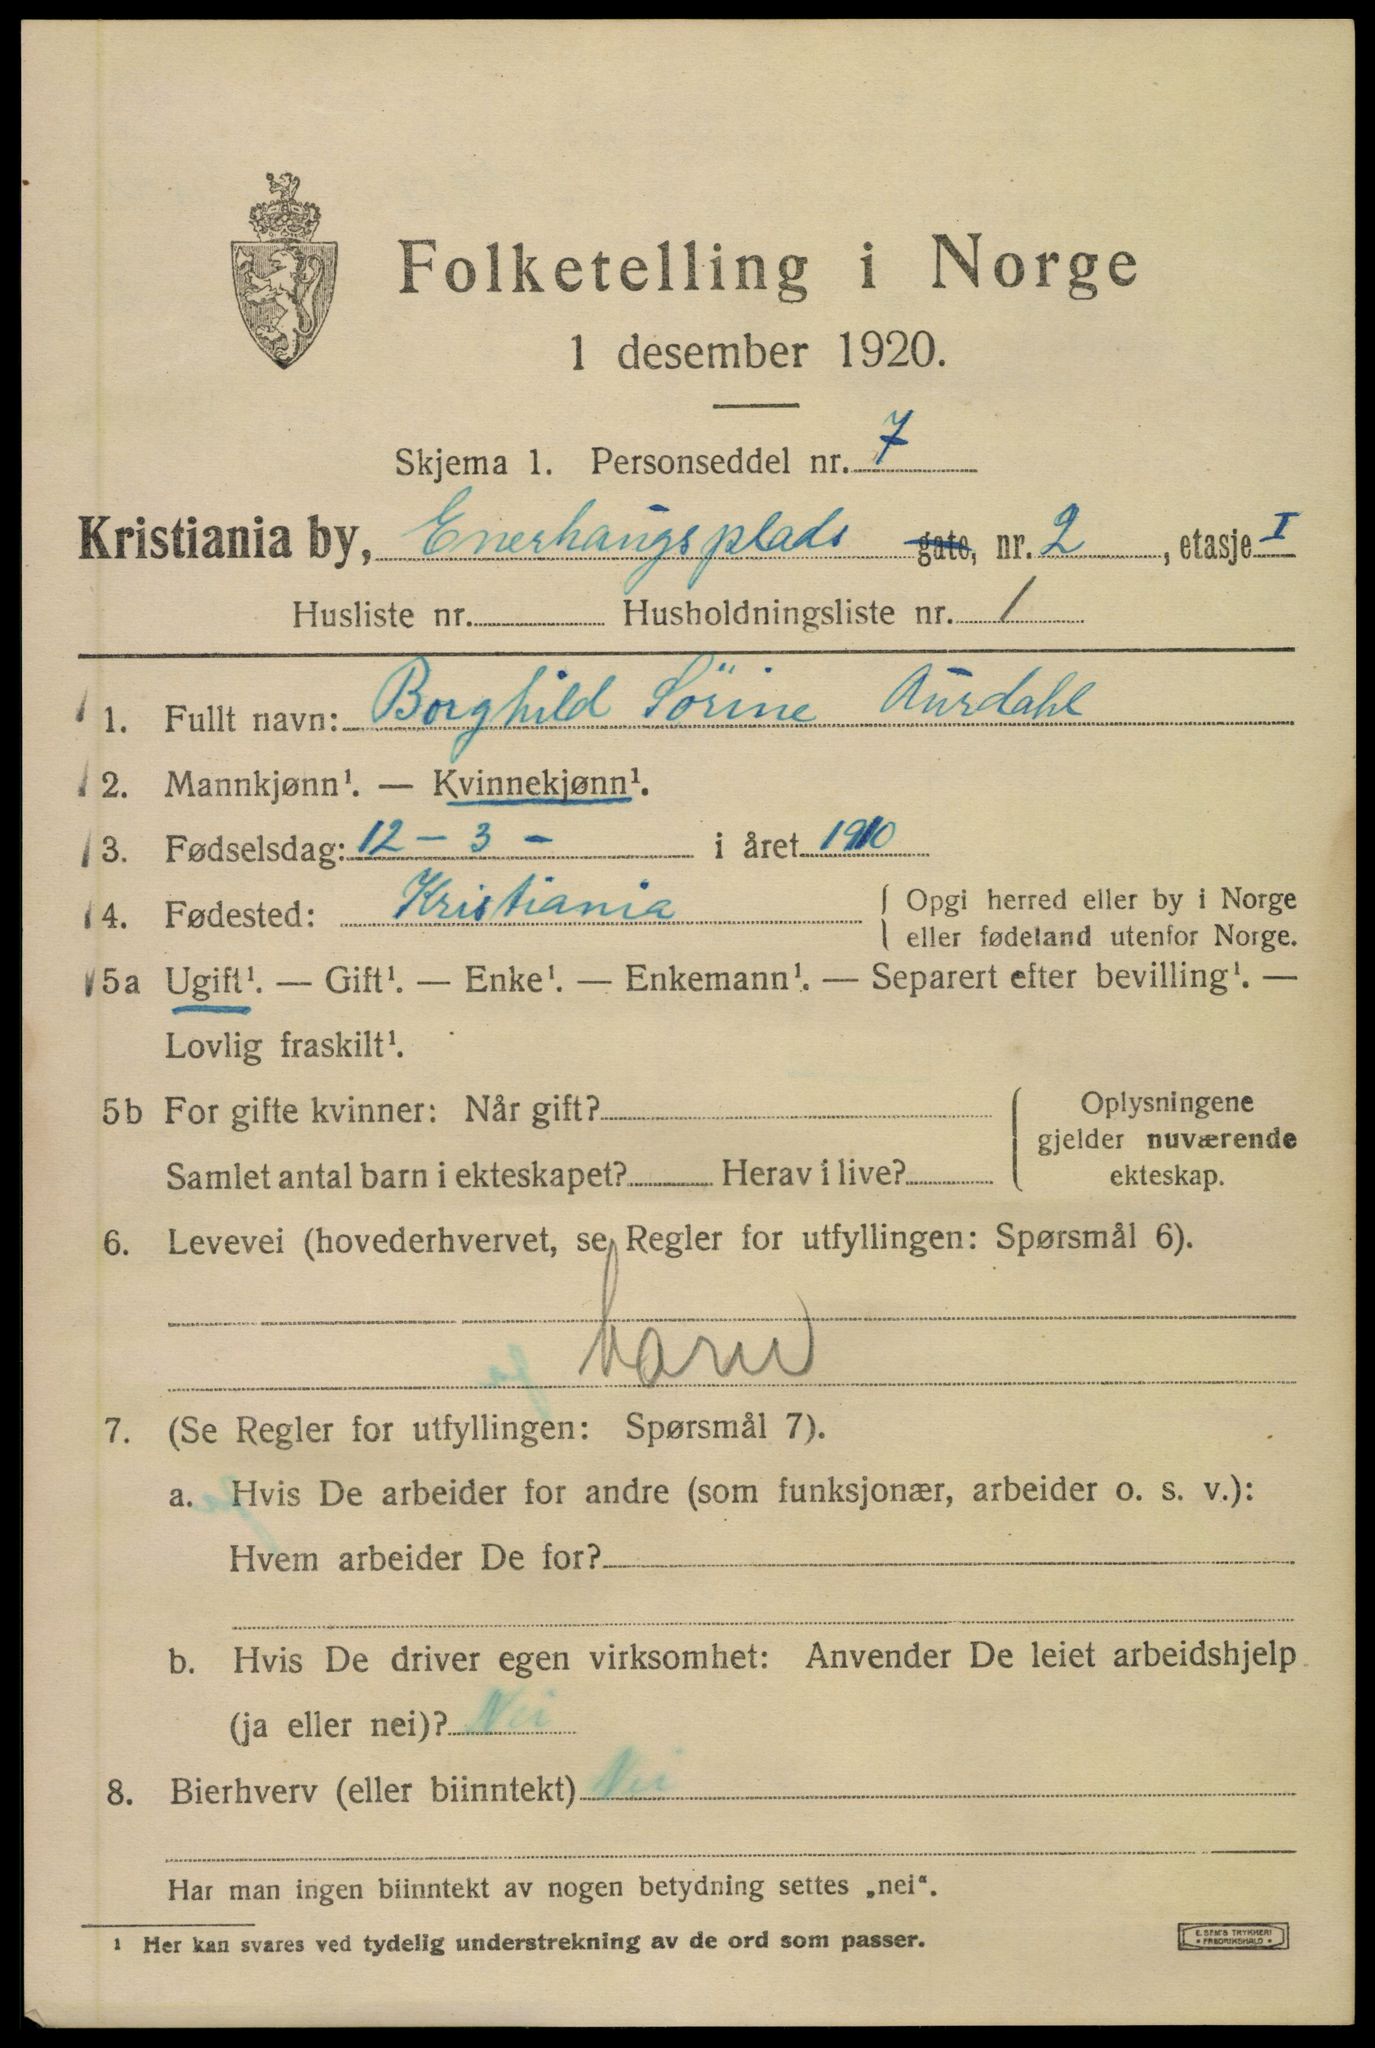 Folketelling i Norge
1 desember 1920.
Skjema 1. Personseddel nr. 7
Kristiania by, Enerhaugsplads gate, nr. 2, etasje I
Husliste nr. Husholdningsliste nr. 1
1. Fullt navn: Borghild Sörine Aurdahl
2. Mannkjønn¹. — Kvinnekjønn¹.
3. Fødselsdag: 12 - 3 - i året 1910
4. Fødested: Kristiania { Opgi herred eller by i Norge
eller fødeland utenfor Norge.
5a Ugift¹. — Gift¹. — Enke¹. — Enkemann¹. — Separert efter bevilling¹. —
Lovlig fraskilt¹.
5b For gifte kvinner: Når gift? { Oplysningene
gjelder nuværende
Samlet antal barn i ekteskapet? Herav i live? ekteskap.
6. Levevei (hovederhvervet, se Regler for utfyllingen: Spørsmål 6).
barn
7. (Se Regler for utfyllingen: Spørsmål 7).
a. Hvis De arbeider for andre (som funksjonær, arbeider o. s. v.):
Hvem arbeider De for?
b. Hvis De driver egen virksomhet: Anvender De leiet arbeidshjelp
(ja eller nei)? Nei
8. Bierhverv (eller biinntekt) Nei
Har man ingen biinntekt av nogen betydning settes „nei“.
¹ Her kan svares ved tydelig understrekning av de ord som passer.
E. SEM'S TRYKKERI
• FREDRIKSHALD •